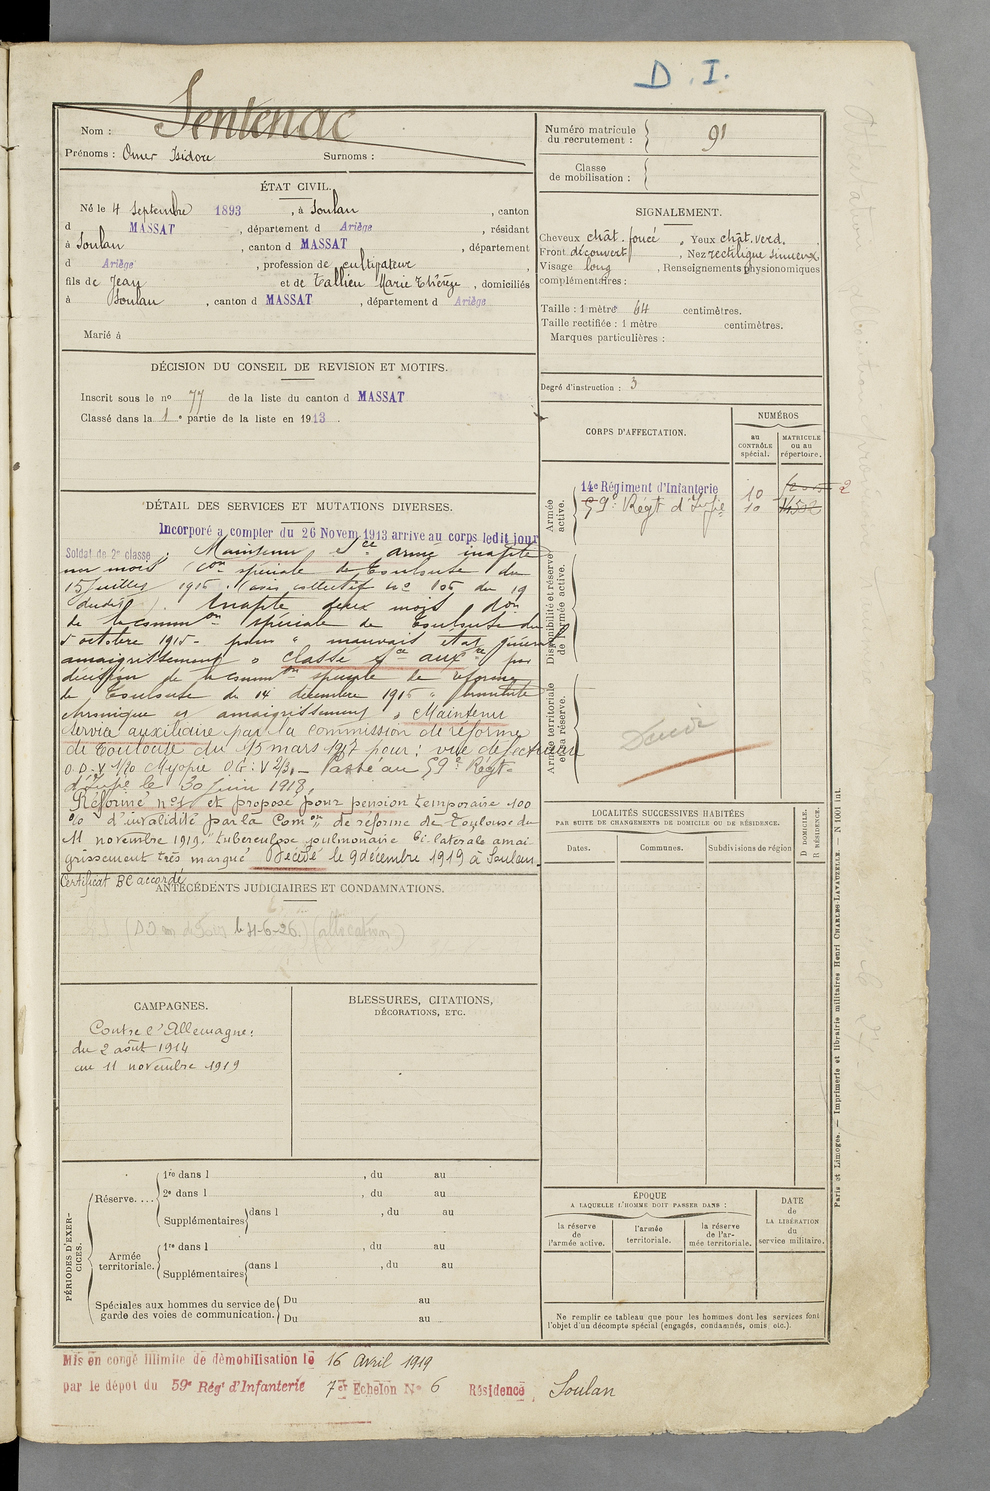 D. I.
Nom : Sentenac
Prénoms : Omer Isidore Surnoms :
Numéro matricule du recrutement : 91
Classe de mobilisation :
ÉTAT CIVIL.
Né le 4 Septembre 1893, à Soulan, canton
d MASSAT, département d Ariège, résidant
à Soulan, canton d MASSAT, département
d Ariège, profession de cultivateur,
fils de Jean et de Tallieu Marie Thérèze, domiciliés
à Soulan, canton d MASSAT, département d Ariège
Marié à
SIGNALEMENT.
Cheveux chât. foncé, Yeux chât. verd.
Front découvert, Nez rectiligne sinueux,
Visage long, Renseignements physionomiques
complémentaires :
Taille : 1 mètre 64 centimètres.
Taille rectifiée : 1 mètre centimètres.
Marques particulières :
Degré d'instruction : 3
DÉCISION DU CONSEIL DE REVISION ET MOTIFS.
Inscrit sous le no 77 de la liste du canton d MASSAT
Classé dans la 1e partie de la liste en 1913.
CORPS D'AFFECTATION.
NUMÉROS
au CONTRÔLE spécial.
MATRICULE ou au répertoire.
Armée active.
14e Régiment d'Infanterie 10
59e Régt d'Infie 10
2
Disponibilité et réserve de l'armée active.
Armée territoriale et sa réserve.
DÉTAIL DES SERVICES ET MUTATIONS DIVERSES.
Incorporé a compter du 26 Novem. 1913 arrive au corps ledit jour
Soldat de 2e classe ; Maintenu Sce armé inapte
un mois Con spéciale de Toulouse du
15 Juillet 1915. (avis collectif no 106 du 19
dudit). Inapte deux mois Don
de la common spéciale de Toulouse du
5 octobre 1915 - pour "mauvais état général
amaigrissement" classé sce auxre par
décision de la common spéciale de réforme
de Toulouse du 14 décembre 1915 "
chronique et amaigrissement" Maintenu
service auxiliaire par la commission de réforme
de Toulouse du 15 mars 1917 pour : vue défectueuse
O.D : V 1/20 Myopie OG : V 2/3. - Passé au 59e Régt
d'Infie le 30 Juin 1918.
Réformé no 1 et proposé pour pension temporaire 100
% d'invalidité par la Comon de réforme de Toulouse du
11 novembre 1919. "tuberculose pulmonaire bi-latérale amai-
grissement très marqué" Décédé le 9 décembre 1919 à Soulan.
Certificat BC accordé
Décédé
ANTÉCÉDENTS JUDICIAIRES ET CONDAMNATIONS.
le 11-6-26. (allocation)
LOCALITÉS SUCCESSIVES HABITÉES
PAR SUITE DE CHANGEMENTS DE DOMICILE OU DE RÉSIDENCE.
Dates. Communes. Subdivisions de région
D DOMICILE.
R RÉSIDENCE.
CAMPAGNES.
Contre l'Allemagne :
du 2 août 1914
au 11 novembre 1919
BLESSURES, CITATIONS,
DÉCORATIONS, ETC.
PÉRIODES D'EXERCICES.
Réserve....
1re dans l , du au
2e dans l , du au
Supplémentaires dans l , du au
Armée territoriale.
1re dans l , du au
Supplémentaires dans l , du au
Spéciales aux hommes du service de Du au
garde des voies de communication. Du au
ÉPOQUE
A LAQUELLE L'HOMME DOIT PASSER DANS :
la réserve de l'armée active.
l'armée territoriale.
la réserve de l'armée territoriale.
DATE de LA LIBÉRATION du service militaire.
Ne remplir ce tableau que pour les hommes dont les services font
l'objet d'un décompte spécial (engagés, condamnés, omis, etc.).
Paris et Limoges. — Imprimerie et librairie militaires Henri CHARLES-LAVAUZELLE. — N 1001 int.
Mis en congé illimité de démobilisation le 16 Avril 1919
par le dépot du 59e Régt d'Infanterie 7er Echelon No 6 Résidence Soulan